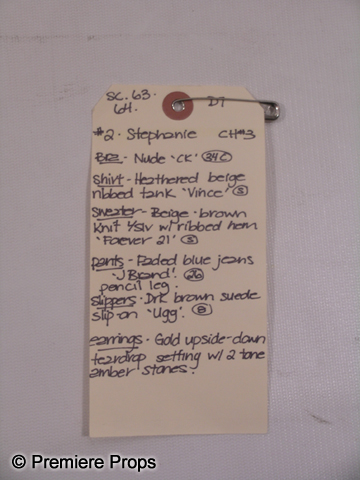 SC. 63.
64. D7
#2. Stephanie CH#3
Bra - Nude 'CK' 34C
Shirt - Heathered beige
ribbed tank 'Vince' S
Sweater - Beige-brown
Knit 1/slv w/ ribbed hem
'Foever 21' S
pants - Faded blue jeans
'J Brand' 26
pencil leg.
Slippers - Drk brown suede
slip-on 'Ugg'. 8
earrings - Gold upside-down
teardrop setting w/ 2 tone
amber stones.
© Premiere Props